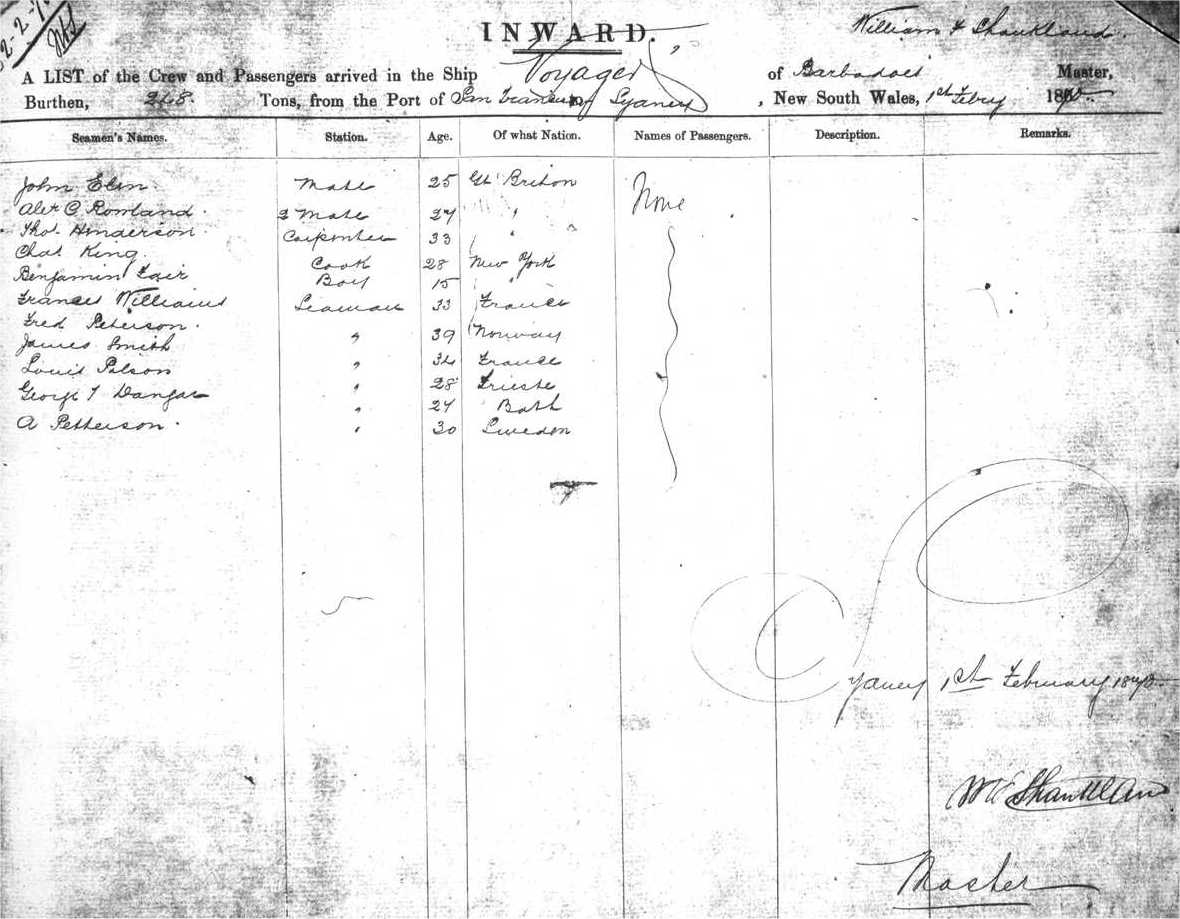 2-2-7
INWARD.
William Shankland.
A LIST of the Crew and Passengers arrived in the Ship "Voyager" of Barbadoes Master,
Burthen, 248. Tons, from the Port of San Francisco Sydney, New South Wales, 1st Febry 187
Seamen's Names. Station. Age. Of what Nation. Names of Passengers. Description. Remarks.
John Elsn Mate 25 Gt Briton None
Alex C Rowland. 2 Mate 27 "
Thos Henderson. Carpenter 33 "
Chas King. Cook 28 New York
Benjamin Fair Boy 15 "
Frances Williams Seaman 33 France
Fred Peterson. " 39 Norway
James Smith " 34 France
Louis Polson " 28 Trieste
George T Dangar " 27 Bath
A Petterson. " 30 Sweden
Sydney 1st February 187
Shankland
Master